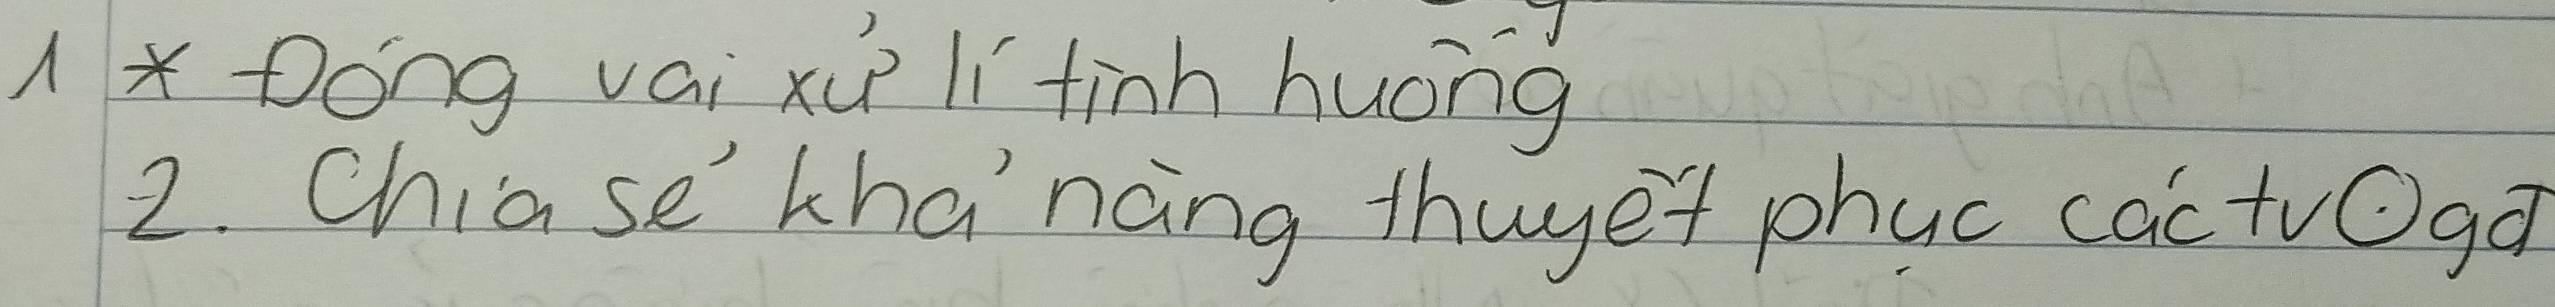 1 * Đóng vai xử lí tình huống
2. Chia sẻ khả năng thuyết phục các tv ⊙ gđ